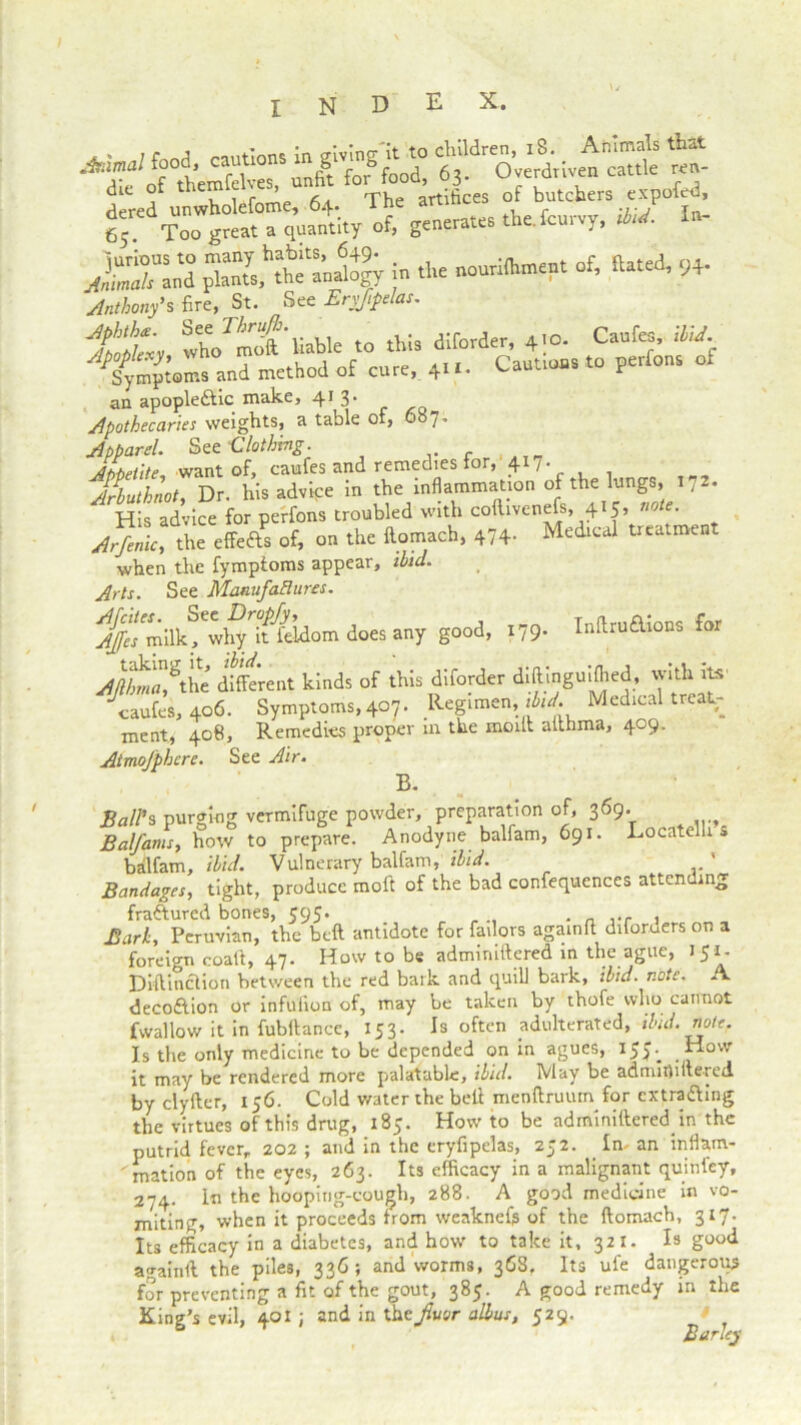 INDEX.
Animal food, cautions in giving it to children, 18. Animals that
die of themſelves, unfit for food, 63. Overdriven cattle ren-
dered unwholeſome, 64. The artifices of butchers expoſed,
65. Too great a quantity of, generates the ſcurvy, ibid. In-
jurious to many habits, 649.
Animals and plants, the analogy in the nouriſhment of, ſtated, 94.
Anthony's fire, St. See Eryſipelas.
Aphthæ. See Thruſh.
Apoplexy, who moſt liable to this diſorder, 410. Cauſes, ibid.
Symptoms and method of cure, 411. Cautions to perſons of
an apoplectic make, 413.
Apothecaries weights, a table of, 687.
Apparel. See Clothing.
Appetite, want of, cauſes and remedies for, 417.
Arbuthnot, Dr. his advice in the inflammation of the lungs, 172.
His advice for perſons troubled with coſtiveneſs, 415, note.
Arſenic, the effects of, on the ſtomach, 474. Medical treatment
when the ſymptoms appear, ibid.
Arts. See Manufactures.
Aſcites. See Dropſy,
Aſſes milk, why it ſeldom does any good, 179. Inſtructions for
taking it, ibid.
Aſthma, the different kinds of this diſorder diſtinguiſhed, with its
cauſes, 406. Symptoms, 407. Regimen, ibid. Medical treat-
ment, 408, Remedies proper in the moiſt aſthma, 409.
Atmoſphere. See Air.
B.
Ball's purging vermifuge powder, preparation of, 369.
Balſams, how to prepare. Anodyne balſam, 691. Locatelli's
balſam, ibid. Vulnerary balſam, ibid.
Bandages, tight, produce moſt of the bad conſequences attending
fractured bones, 595.
Bark, Peruvian, the beſt antidote for ſailors againſt diſorders on a
foreign coaſt, 47. How to be adminiſtered in the ague, 151.
Diſtinction between the red bark and quill bark, ibid. note. A
decoction or infuſion of, may be taken by thoſe who cannot
ſwallow it in ſubſtance, 153. Is often adulterated, ibid. note.
Is the only medicine to be depended on in agues, 155. How
it may be rendered more palatable, ibid. May be adminiſtered
by clyſter, 156. Cold water the beſt menſtruum for extracting
the virtues of this drug, 185. How to be adminiſtered in the
putrid fever, 202; and in the eryſipelas, 252. In an inflam-
mation of the eyes, 263. Its efficacy in a malignant quinſey,
274. In the hooping-cough, 288. A good medicine in vo-
miting, when it proceeds from weakneſs of the ſtomach, 317.
Its efficacy in a diabetes, and how to take it, 321. Is good
againſt the piles, 336; and worms, 368. Its uſe dangerous
for preventing a fit of the gout, 385. A good remedy in the
King's evil, 401; and in the fluor albus, 529.
Barley